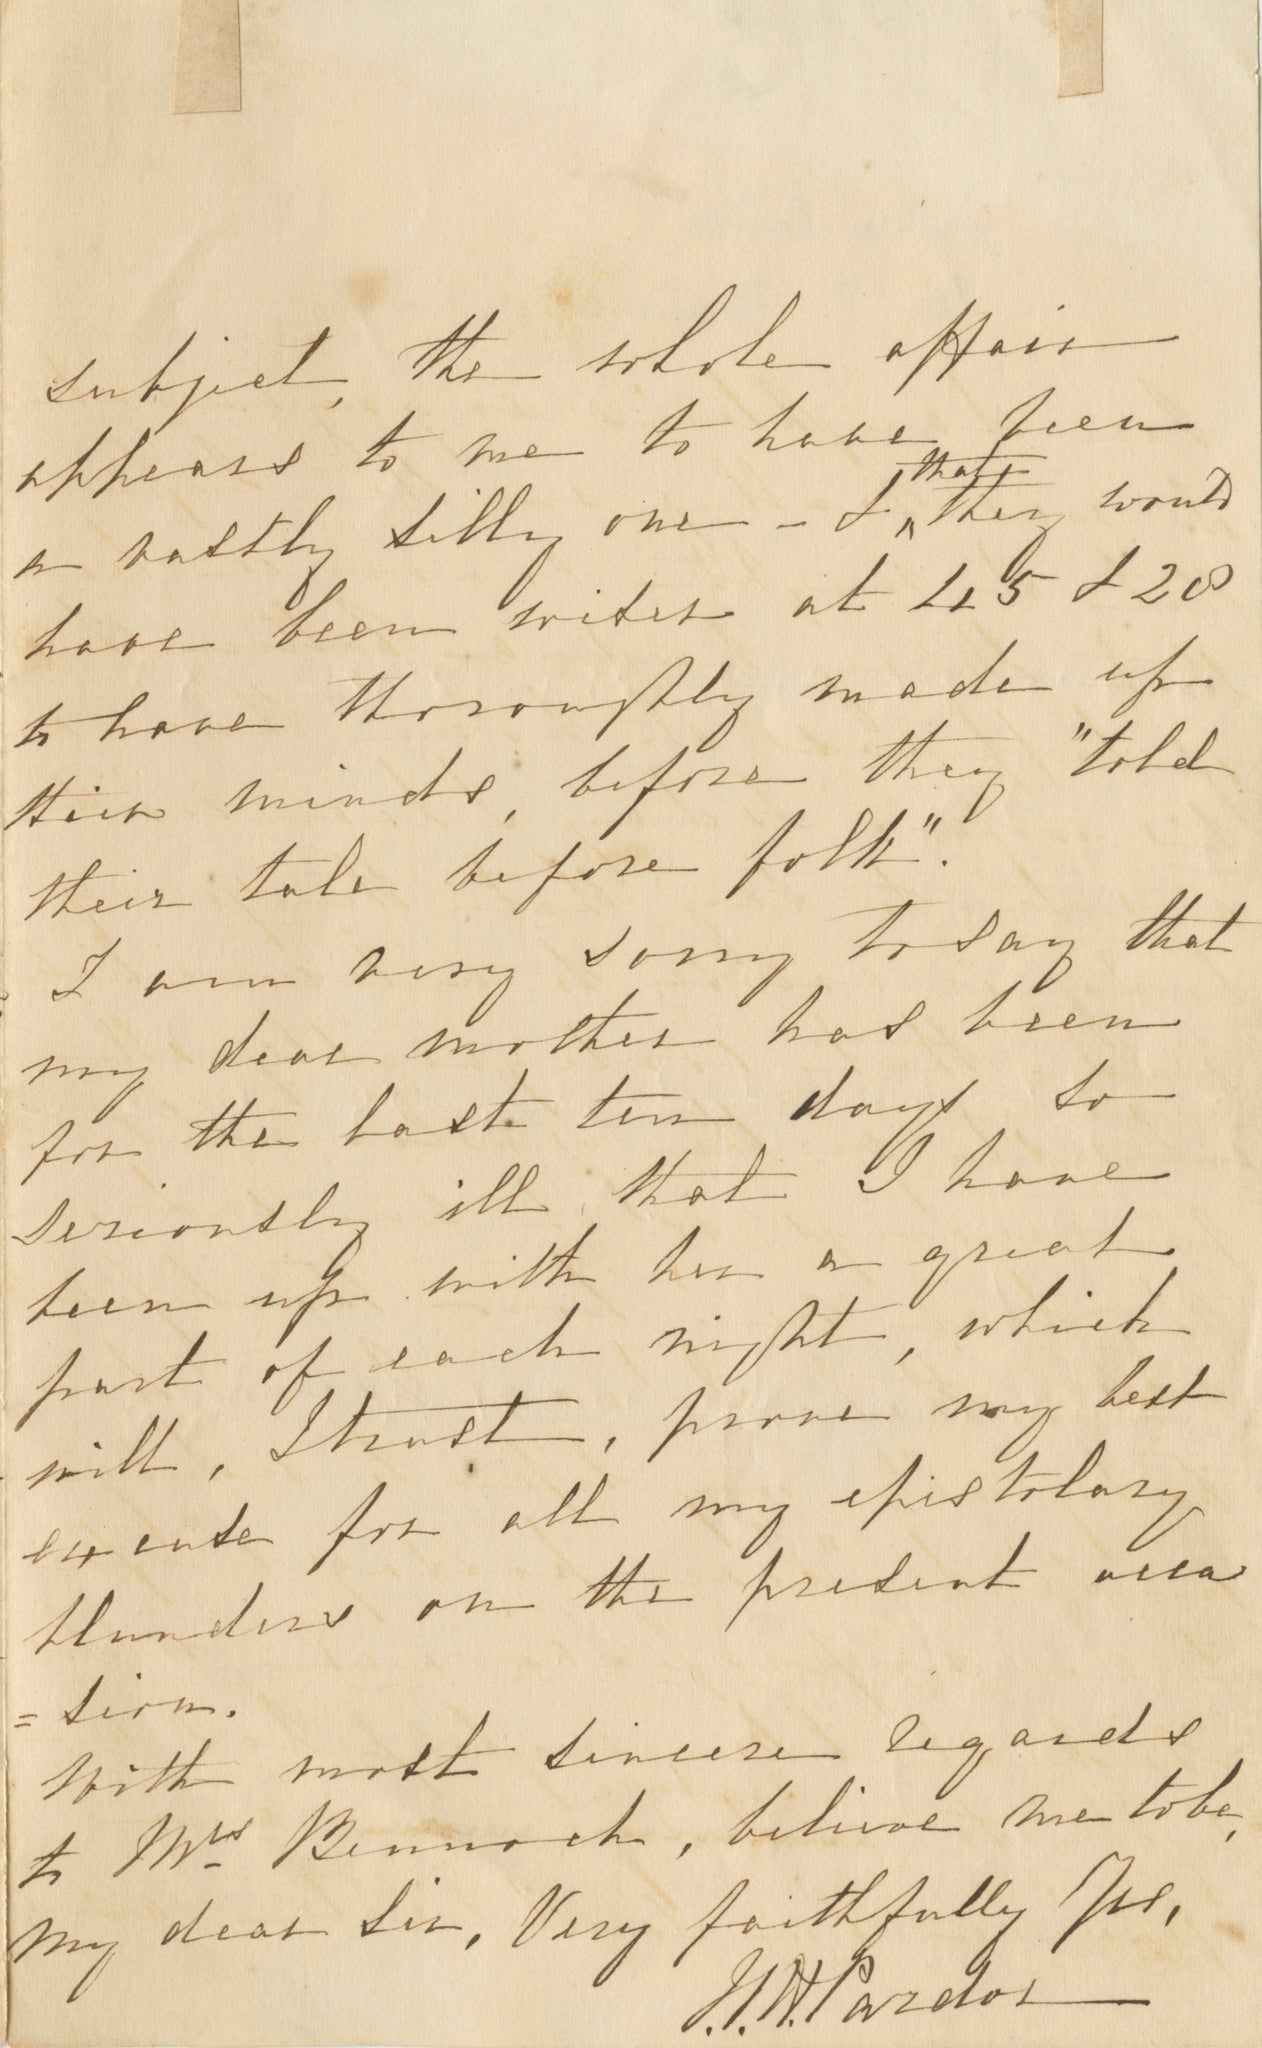 subject, the whole affair
appears to me to have been
a vastly silly one - & that they would
have been wiser at 45 & 28
to have thoroughly made up
their minds, before they "told
their tale before folk".
I am very sorry to say that
my dear mother has been
for the last ten days so
seriously ill that I have
been up with her a great
part of each night, which
will, I trust, prove my best
excuse for all my epistolary
blunders on the present occa
=sion.
With most sincere regards
to Mrs Bennoch, believe me to be,
my dear Sir, Very faithfully Yrs,
Pardoe